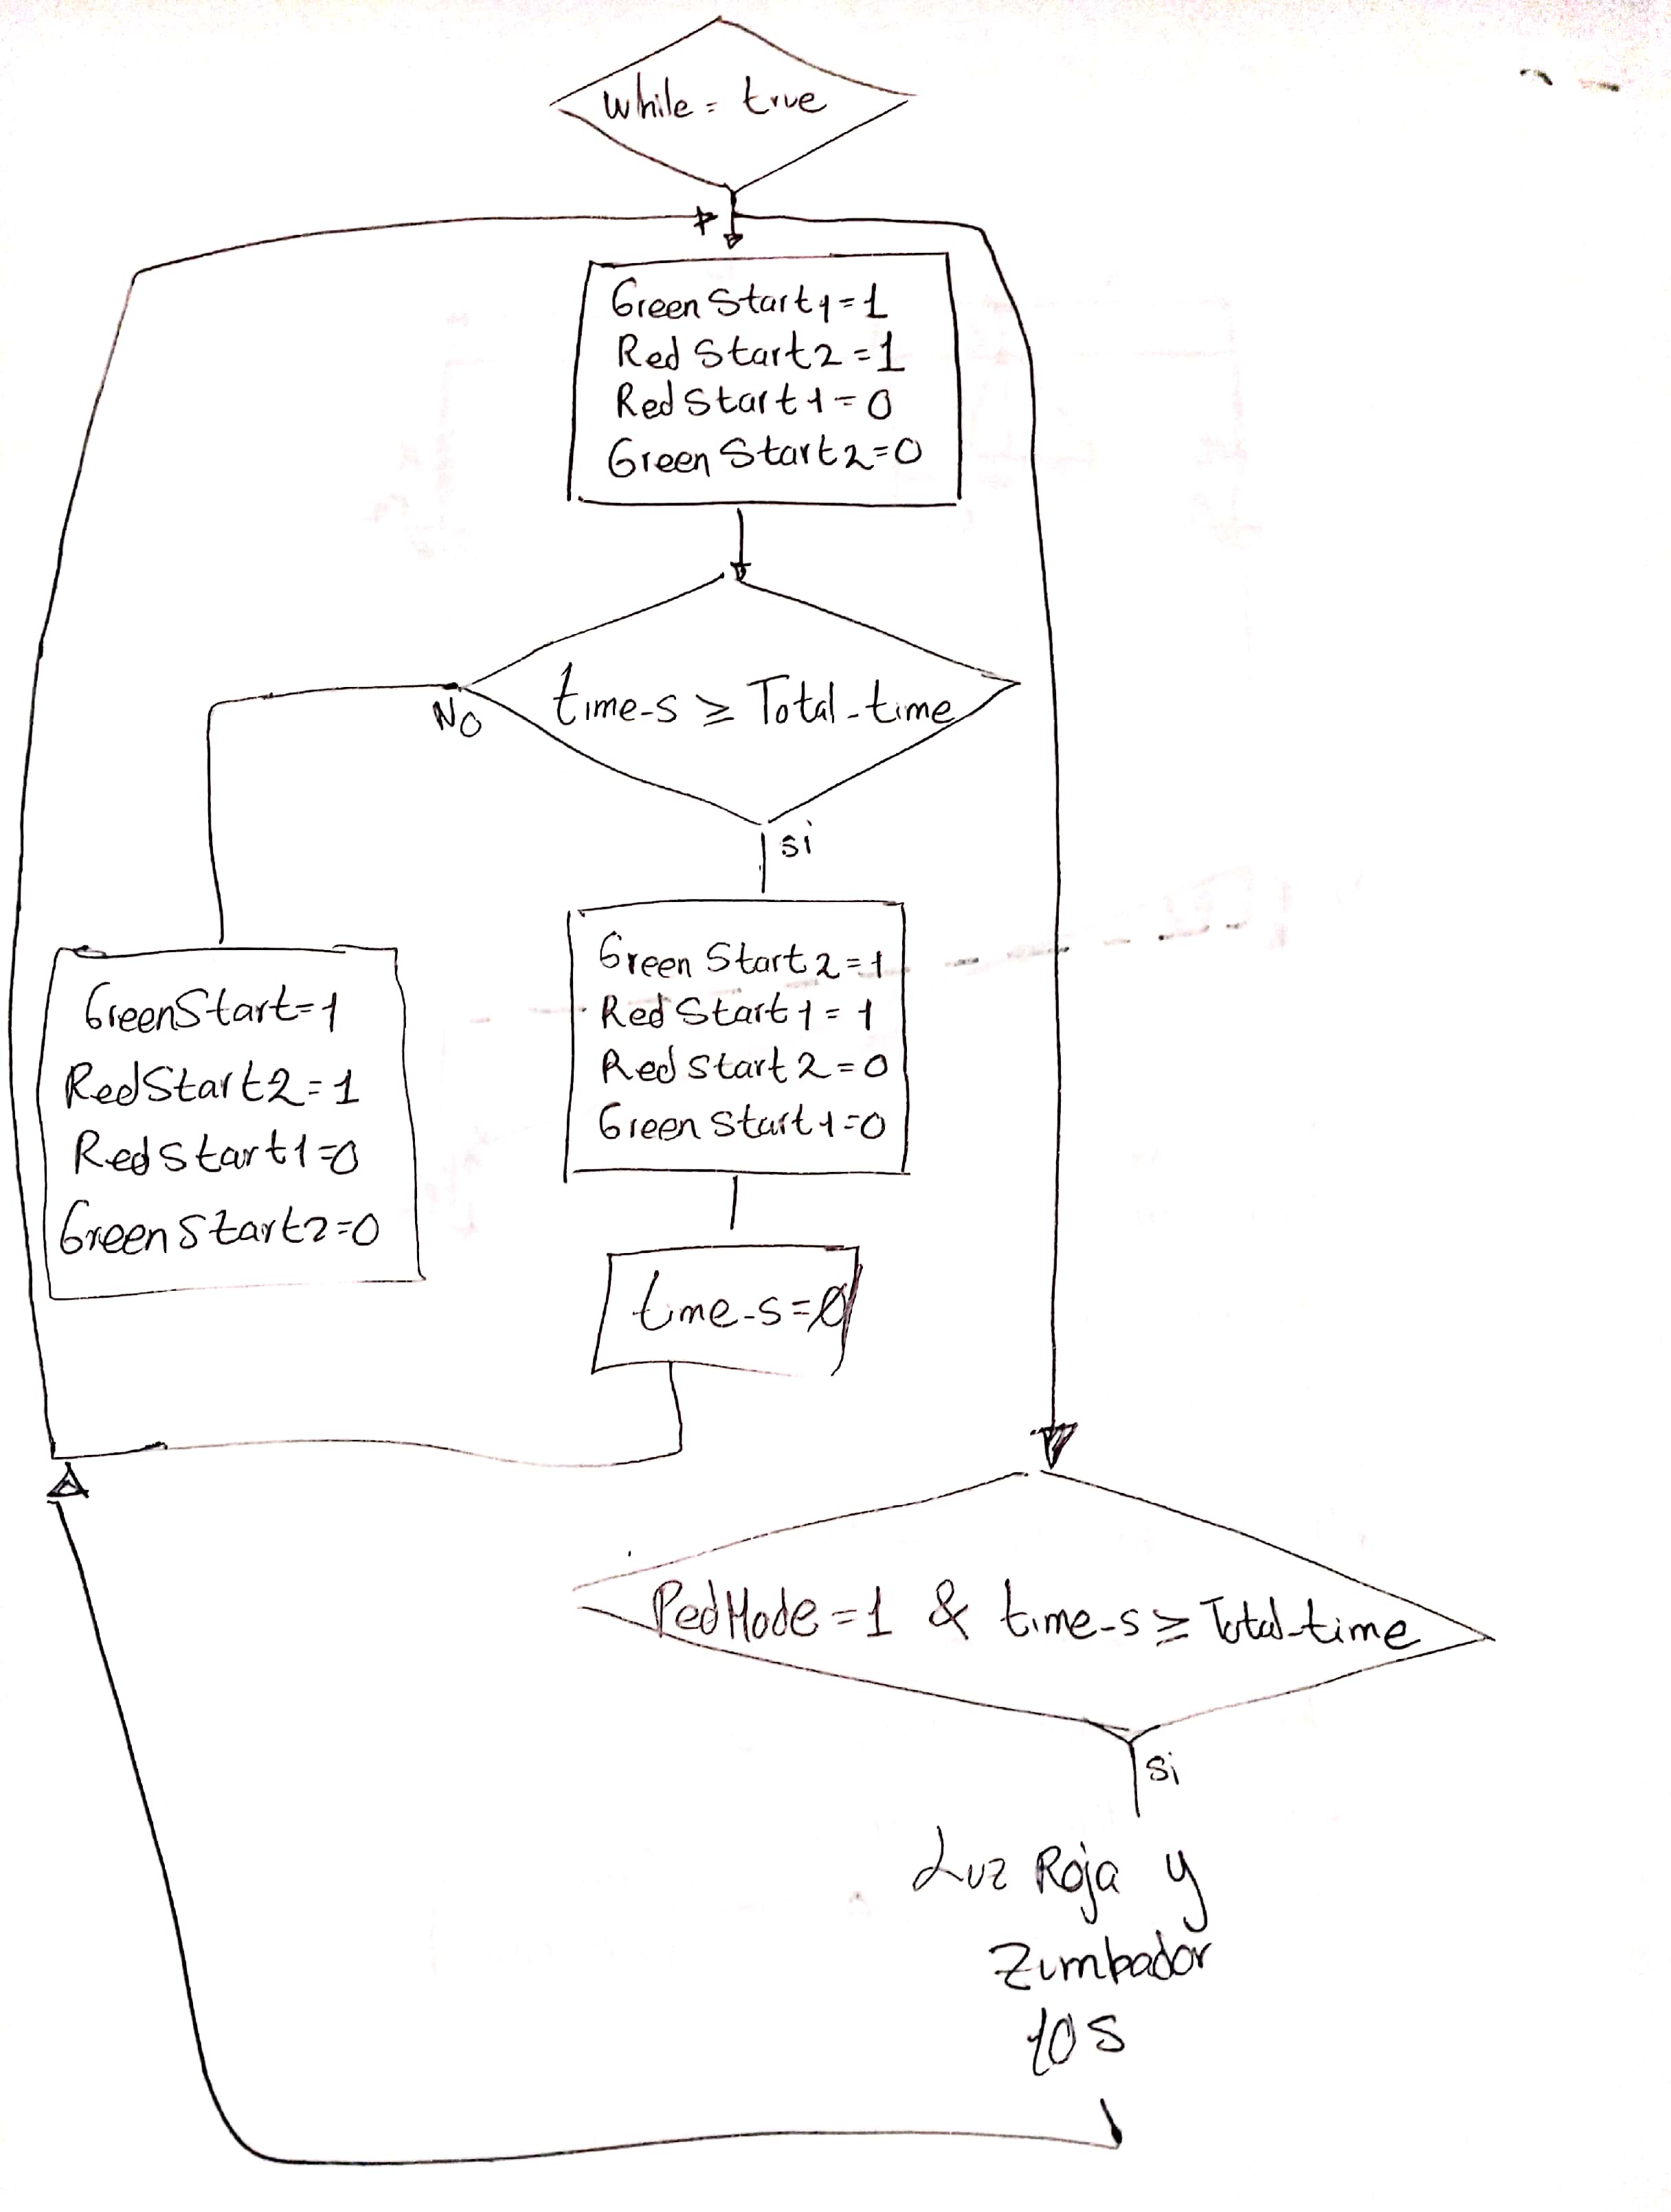 while = true
Green Start1=1
Red Start2=1
Red Start1=0
Green Start2=0
time-s ≥ Total-time
No
si
Green Start2=1
Red Start1=1
Red Start2=0
Green Start1=0
GreenStart=1
RedStart2=1
RedStart1=0
GreenStart2=0
time-s=0
PedMode=1 & time-s ≥ Total-time
si
Luz Roja y
Zumbador
10 s